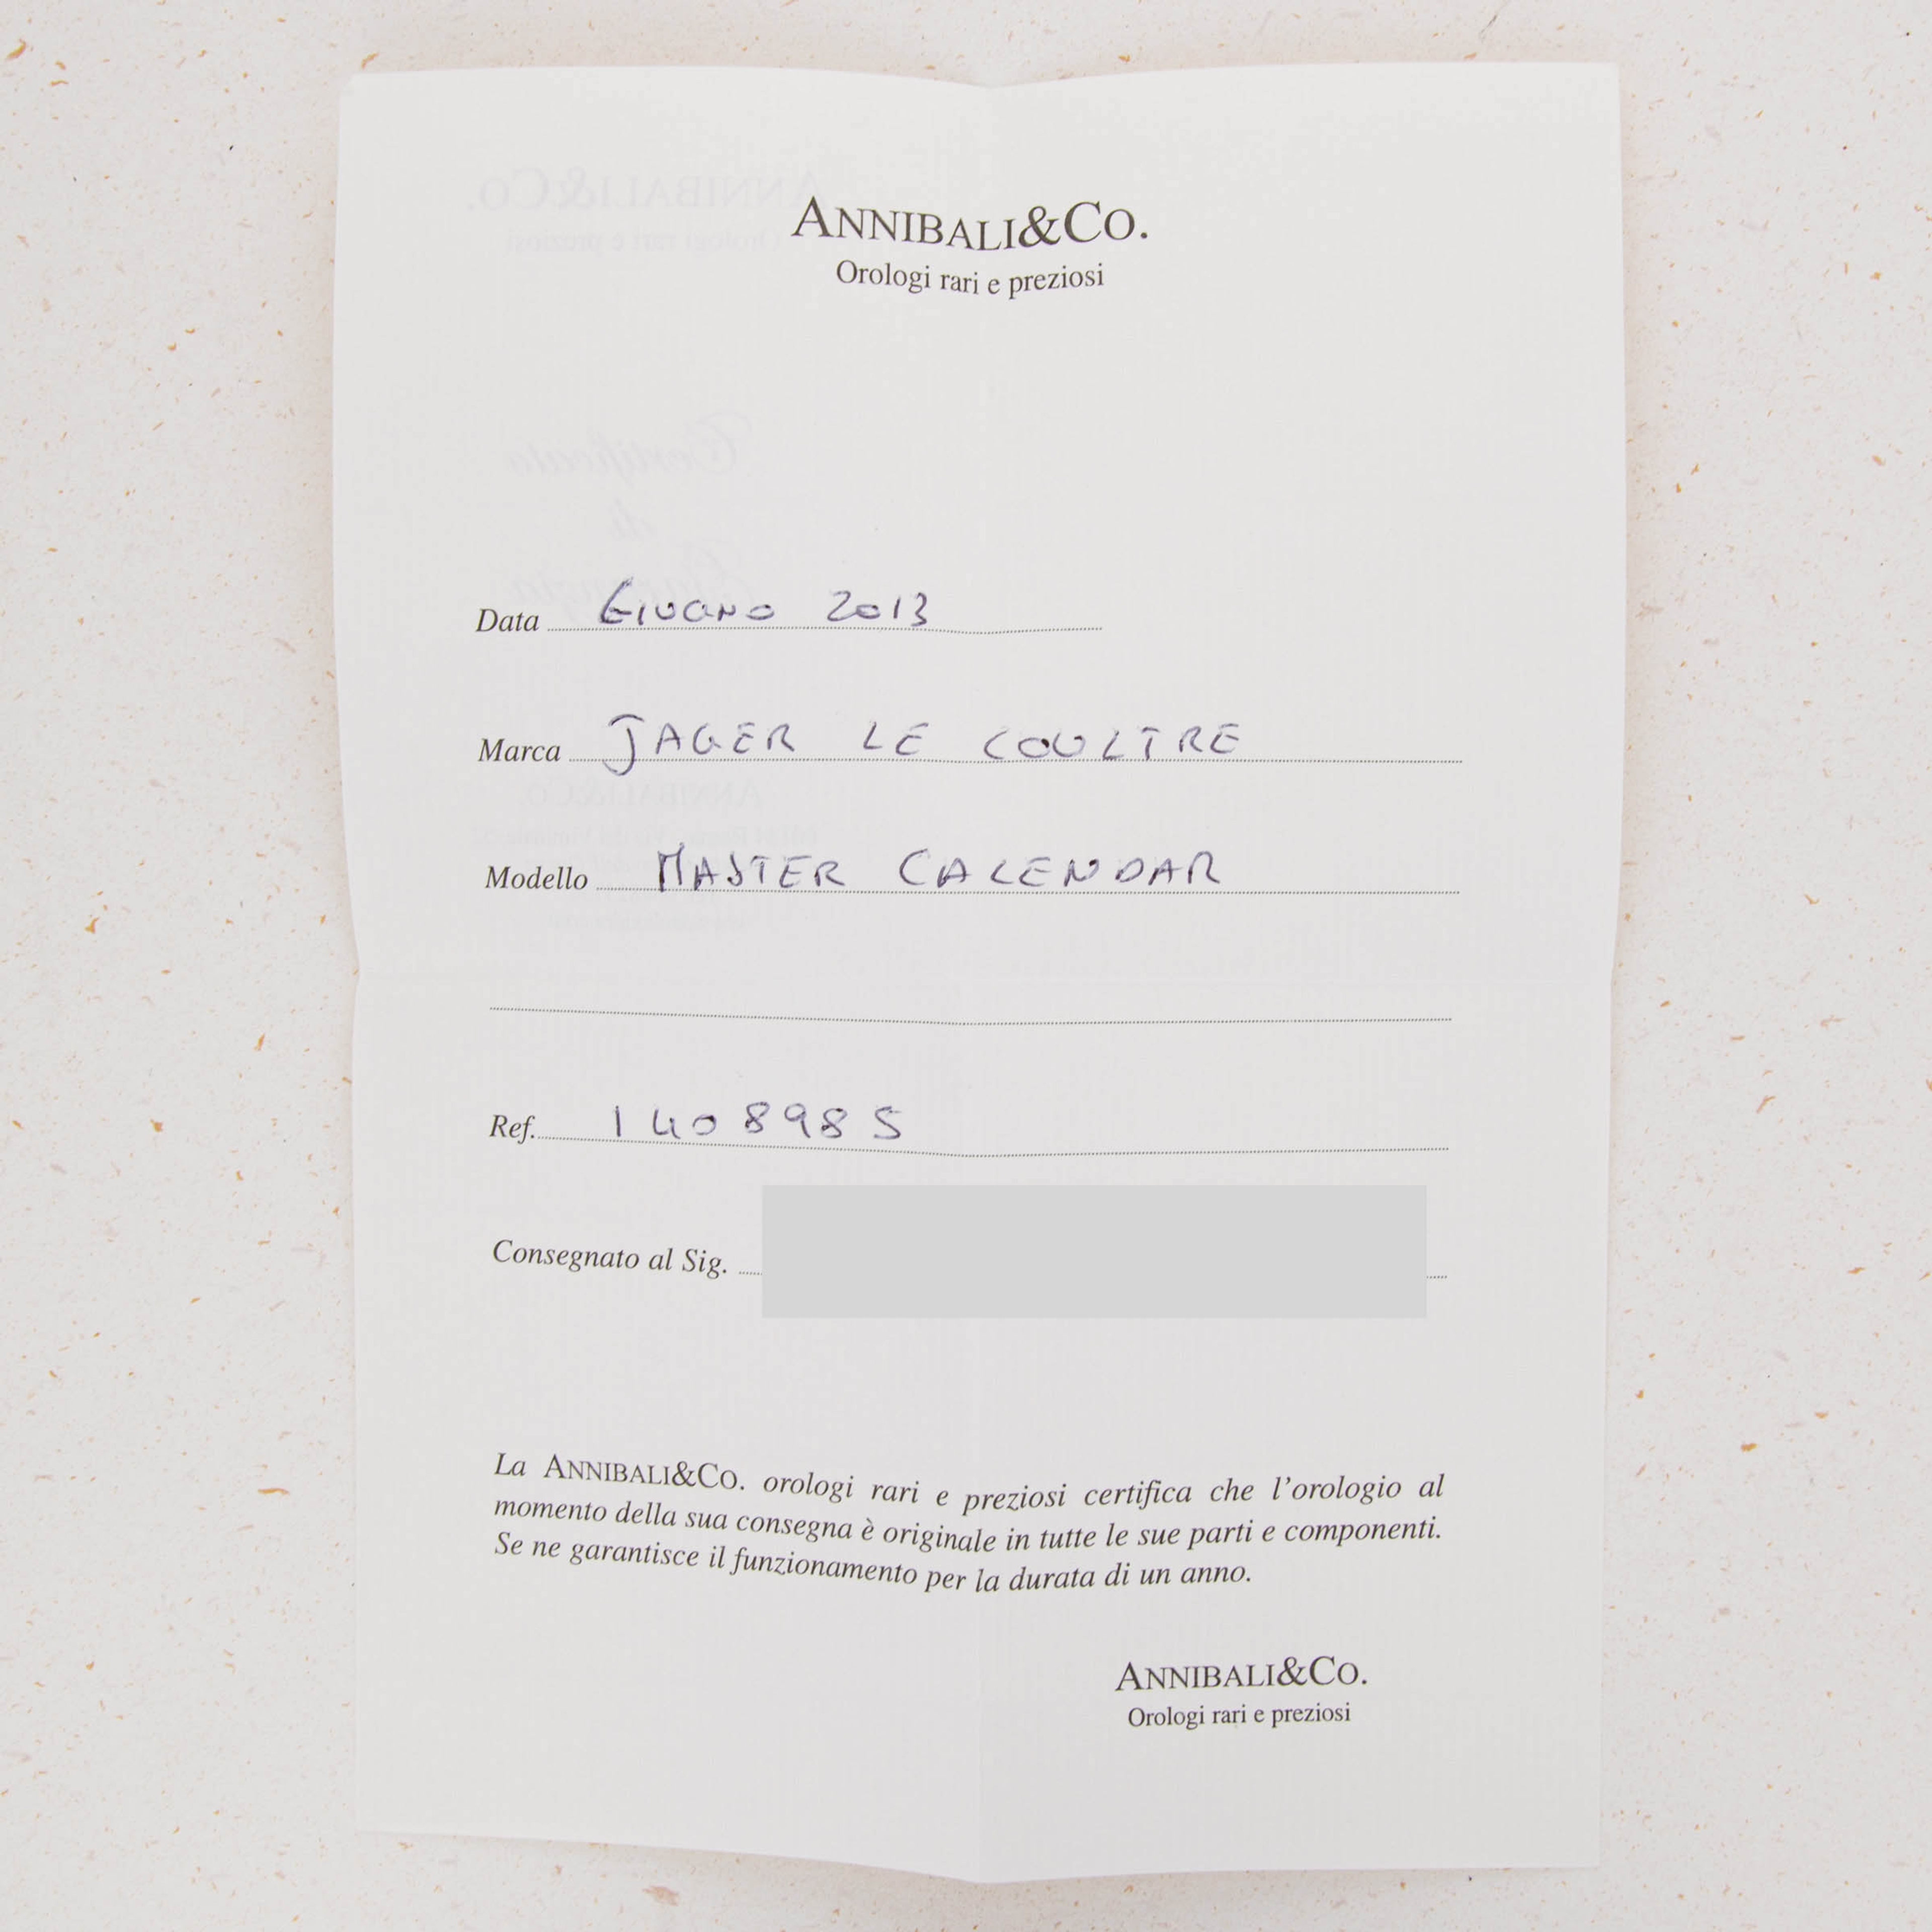 ANNIBALI&CO.
Orologi rari e preziosi
Data GIUGNO 2013
Marca JAGER LE COULTRE
Modello MASTER CALENDAR
Ref. 1408985
Consegnato al Sig.
La ANNIBALI&CO. orologi rari e preziosi certifica che l'orologio al
momento della sua consegna è originale in tutte le sue parti e componenti.
Se ne garantisce il funzionamento per la durata di un anno.
ANNIBALI&CO.
Orologi rari e preziosi